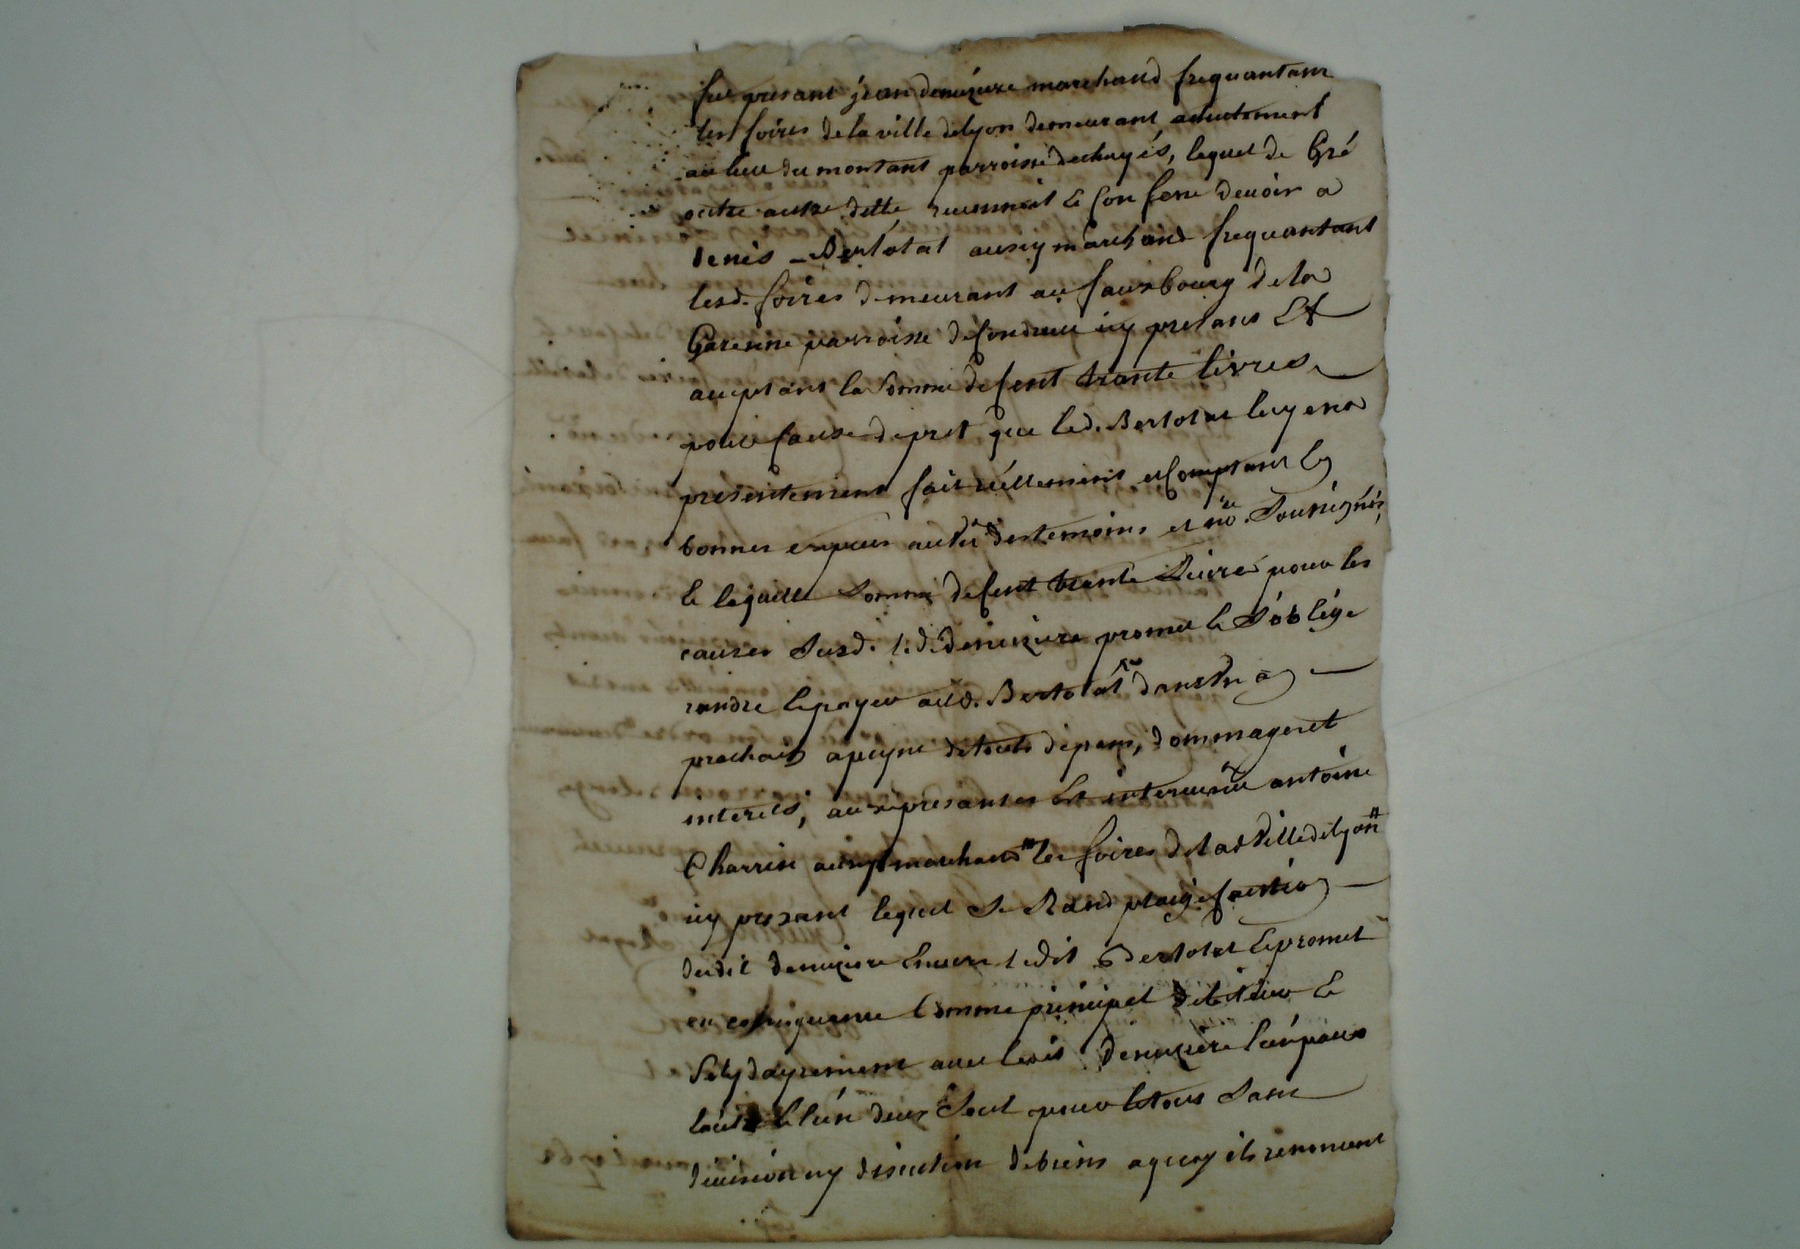 fut presant jean demeziere marchand frequantant
les foires de la ville de lyon demeurant actuelement
au lieu du montant parroisse de chuyés, lequel de Gré
outre autre dette reconnoit Et Confesse devoir a
denis Bertolat aussy marchand frequantant
lesd. foires demeurant au fauxbourg de la
Garenne parroisse de Condrieu icy presant Et
acceptant la Somme de Cent trante livres
pour Cause de pret que led. Bertolat luy en a
presentement fait réellement et Comptant En
bonnes especes au veu des temoins et no.re Sousignés,
la laquelle Somme de Cent trente Livres pour les
causes Susd. led. demeziere promet Et S'oblige
randre Et payer aud. Bertolat dans Un an
prochain a peyne de touts depens, dommages et
interets, aux presantes Est intervenu antoine
Charrin aussy marchand les foires de lad. Ville de lyon
icy presant lequel Se Rand plaige Caution
dudit demeziere Envers ledit Bertolat Et promet
en consequence Comme principal debiteur Et
Solydayrement avec ledit demeziere l'un pour
l'autre Et l'un deux Seul pour le tous Sans
division ny discution de biens a quoy ils renoncent